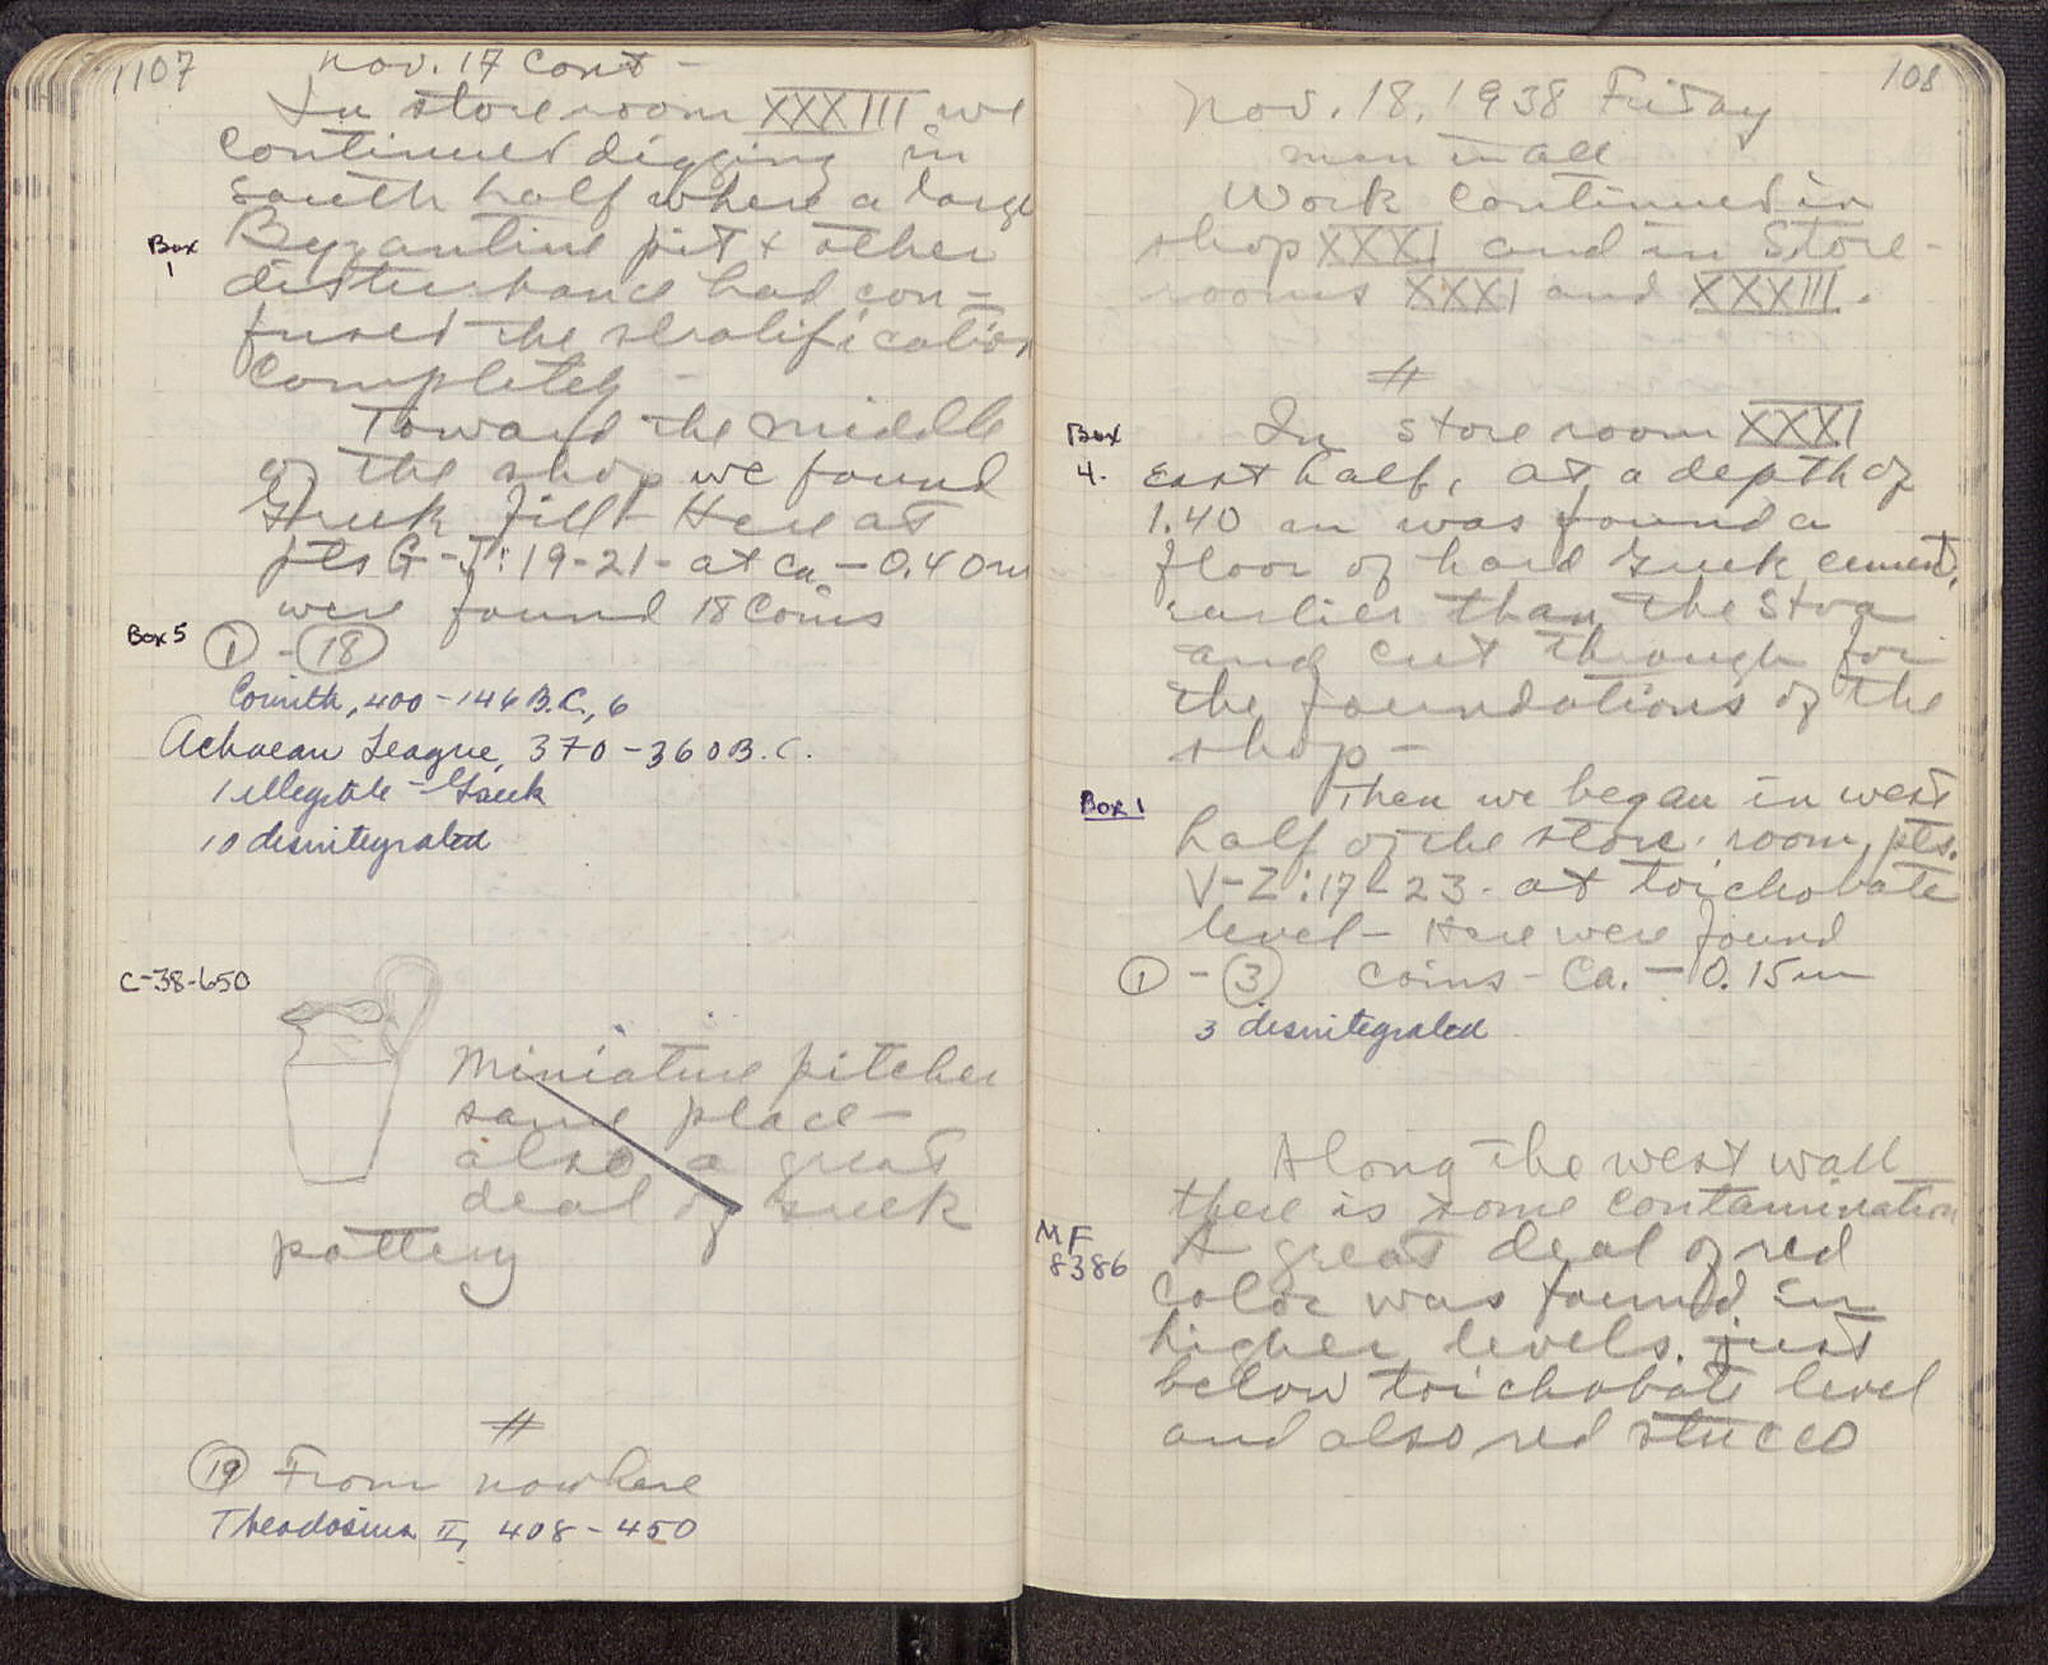 1107
Nov. 17 Cont -
In store room XXXIII we
continued digging in
south half where a large
Box 1
Byzantine pit + other
disturbance had con-
fused the stratification
completely -
Toward the middle
of the shop we found
Greek fill - Here at
pts G-J:19-21- at ca. -0.40m
were found 18 Coins
Box 5
① - ⑱
Corinth, 400-146 B.C., 6
Achaean League, 370-360 B.C.
1 illegible - Greek
10 disintegrated
C-38-650
Miniature pitcher
same place -
also a great
deal of Greek
pottery
#
⑲ From nowhere
Theodosius II, 408-450
108
Nov. 18, 1938 Friday
men in all
Work continued in
shop XXXI and in Store-
rooms XXXI and XXXIII.
#
Box 4.
In store room XXXI
East half, at a depth of
1.40 m was found a
floor of hard Greek cement,
earlier than the Stoa
and cut through for
the foundations of the
shop -
Box 1
Then we began in west
half of the store room, pts.
V-Z:17-23- at toichobate
level - Here were found
① - ③ coins - Ca. -0.15m
3 disintegrated
Along the west wall
there is some contamination
MF 8386
A great deal of red
color was found in
higher levels. just
below toichobate level
and also red stucco